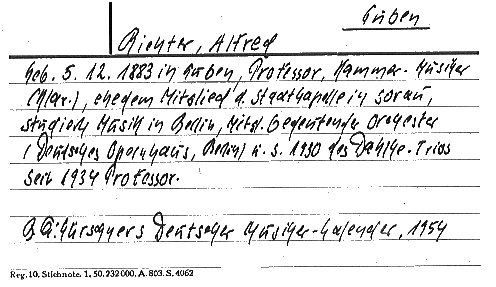 Guben
Richter, Alfred
Geb. 5. 12. 1883 in Guben, Professor, Kammer-Musiker
(Klar.), ehedem Mitglied d. Stadtkapelle in Sorau,
studierte Musik in Berlin, Mitgl. bedeutender Orchester
(Deutsches Opernhaus, Berlin) u. s. 1930 des Dahlke-Trios
seit 1934 Professor.
Kürschners Deutscher Musiker-Kalender, 1954
Reg. 10. Stichnote. 1, 50. 232 000. A. 803. S. 4062